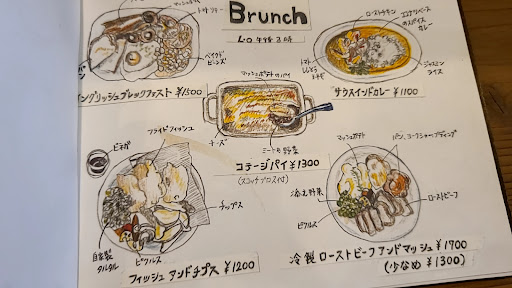 Brunch
L.O 午後3時
マッシュルーム
トマト
ベイクド
ビーンズ
イングリッシュブレックファスト ¥1500
ローストチキン
ココナッツベースの
スパイス
カレー
トマト
ししとう
ナス
ジャスミン
ライス
サウスインドカレー ¥1100
マッシュポテトのパイ
チーズ
ミートと野菜
コテージパイ ¥1300
(スコッチブロス付)
ビネガー
フライドフィッシュ
チップス
自家製
タルタル
ピクルス
フィッシュアンドチプス ¥1200
マッシュポテト
パン、ヨークシャープディング
冷え野菜
ピクルス
ローストビーフ
冷製ローストビーフアンドマッシュ ¥1700
(少なめ ¥1300)